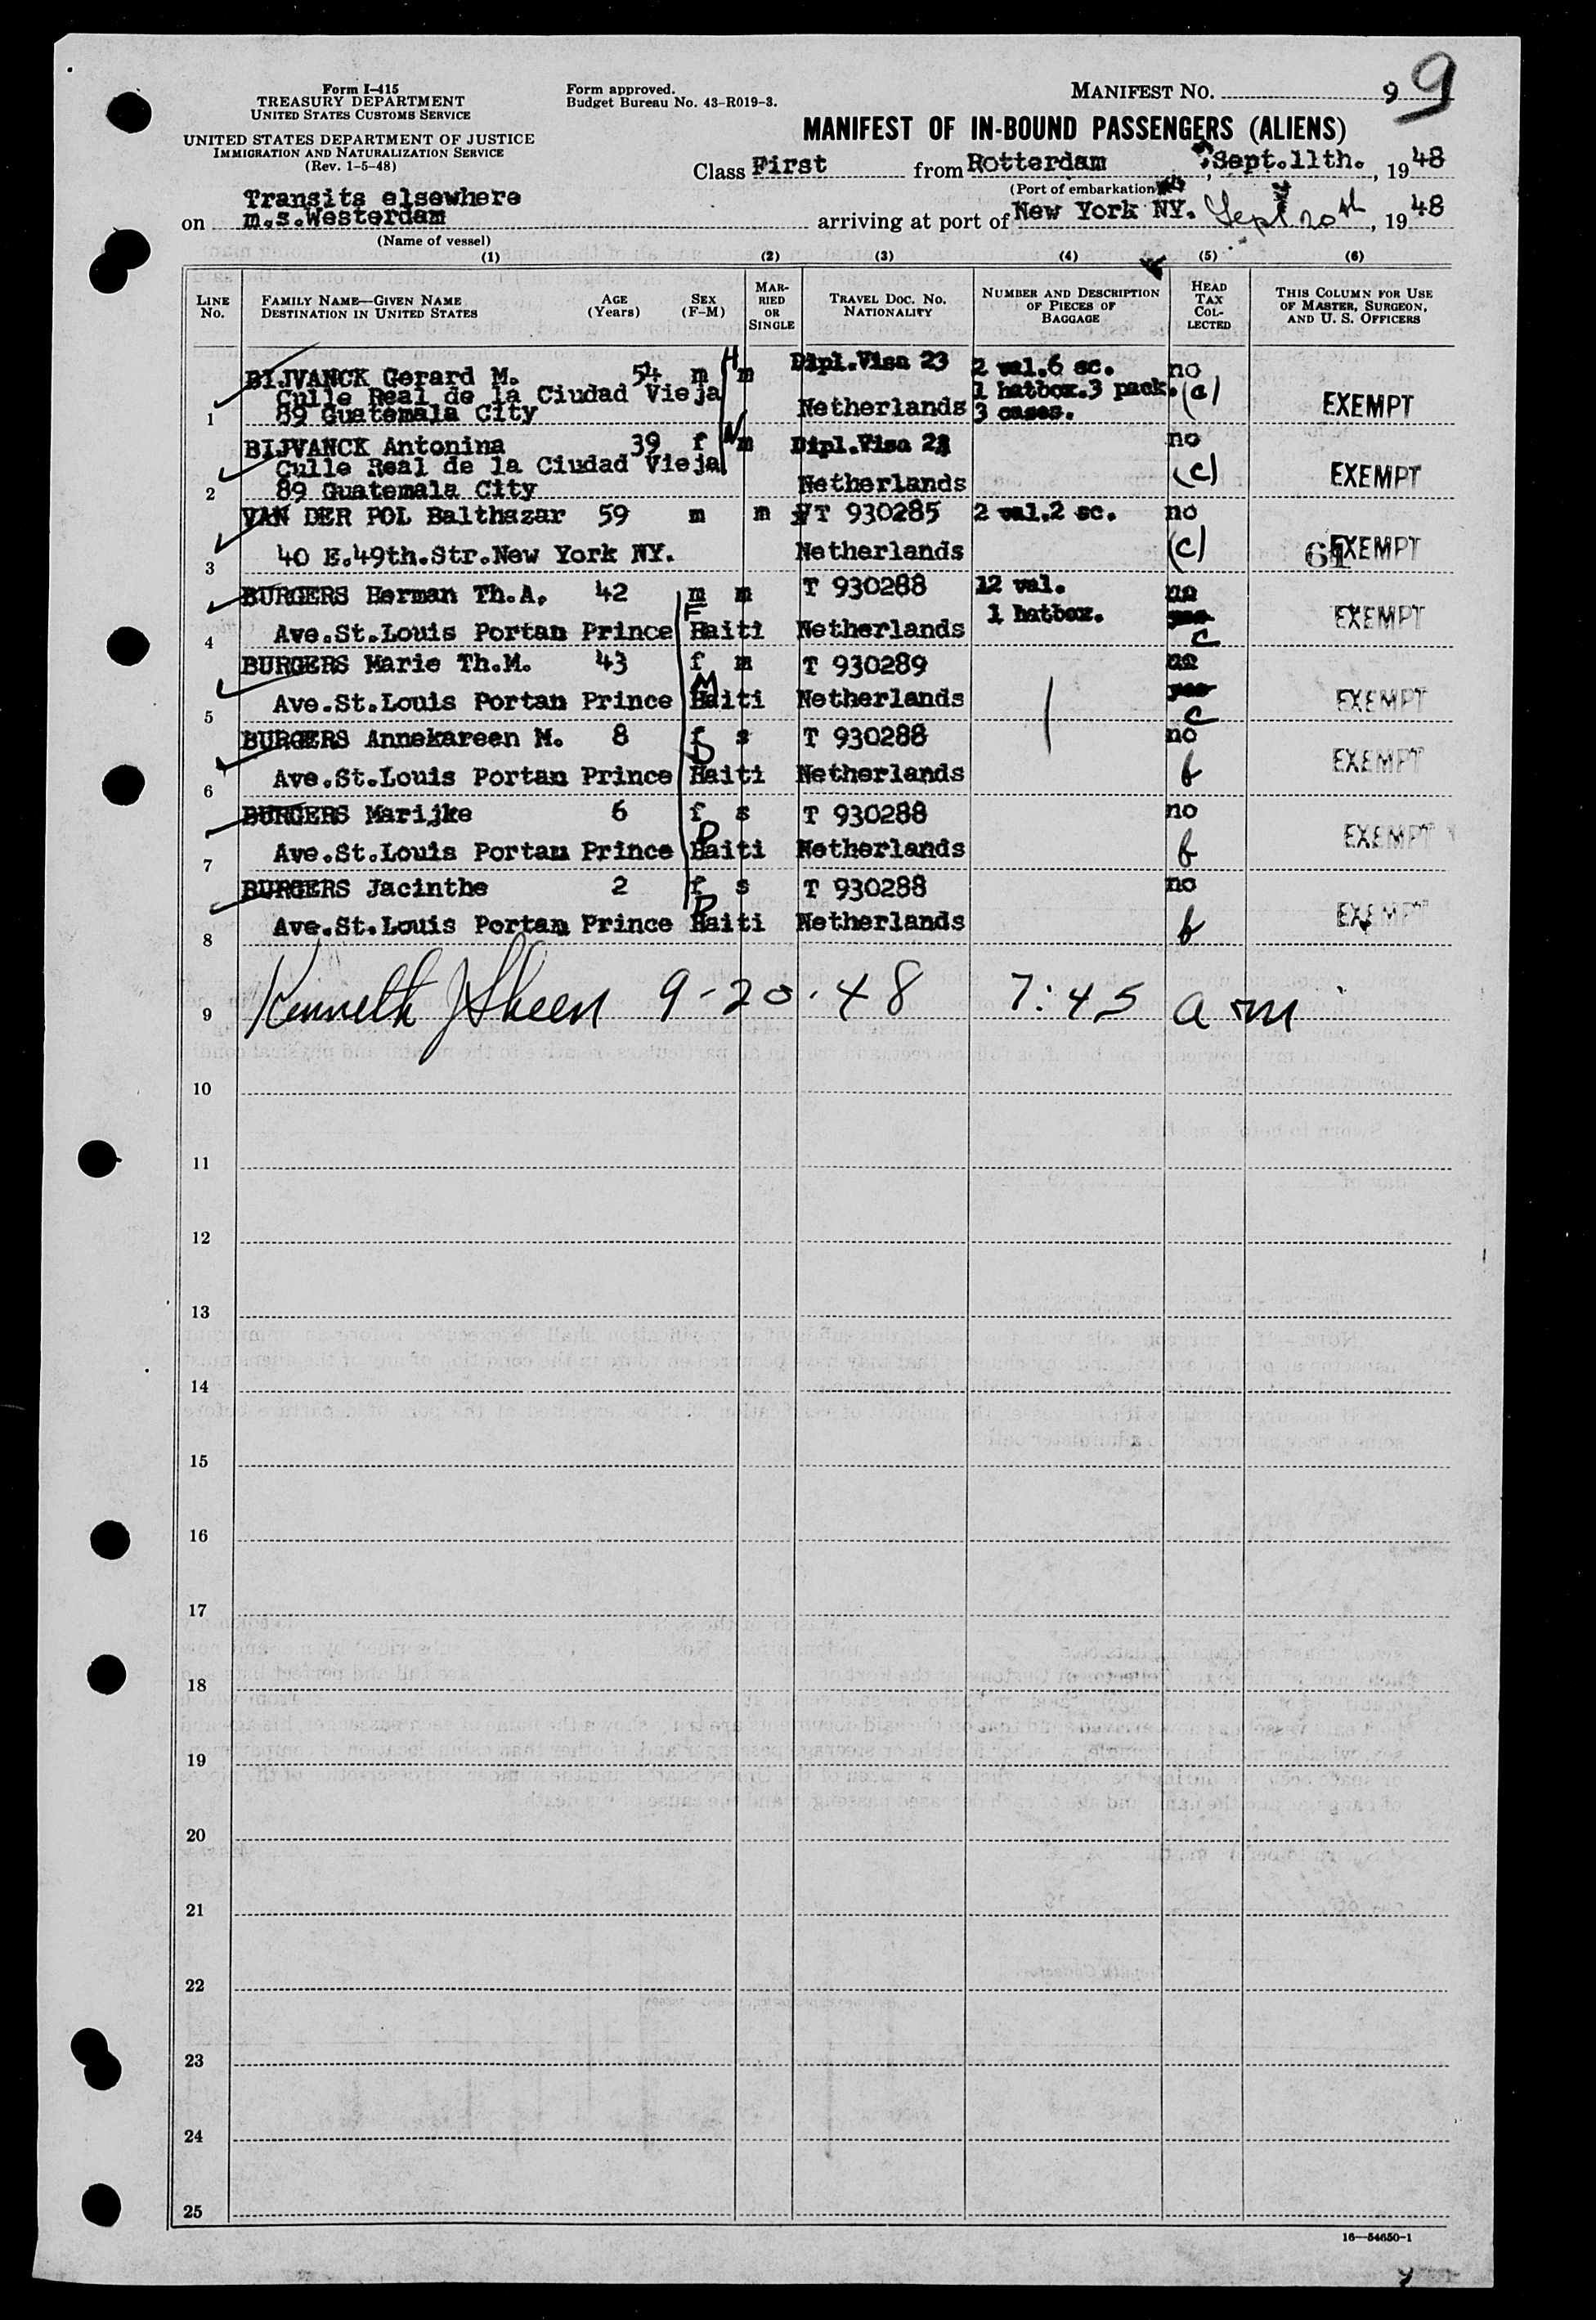 Form I-415
TREASURY DEPARTMENT
UNITED STATES CUSTOMS SERVICE
UNITED STATES DEPARTMENT OF JUSTICE
IMMIGRATION AND NATURALIZATION SERVICE
(Rev. 1-5-48)
Form approved.
Budget Bureau No. 43-R019-3.
MANIFEST NO. 9 9
MANIFEST OF IN-BOUND PASSENGERS (ALIENS)
Class First from Rotterdam, Sept.11th., 1948
(Port of embarkation)
Transits elsewhere
on m.s.Westerdam arriving at port of New York NY. Sept 20th, 1948
(Name of vessel)
(1) (2) (3) (4) (5) (6)
LINE No. FAMILY NAME—GIVEN NAME DESTINATION IN UNITED STATES AGE (Years) SEX (F-M) MARRIED OR SINGLE TRAVEL DOC. NO. NATIONALITY NUMBER AND DESCRIPTION OF PIECES OF BAGGAGE HEAD TAX COLLECTED THIS COLUMN FOR USE OF MASTER, SURGEON, AND U. S. OFFICERS
BIJVANCK Gerard M. 54 m H m Dipl.Visa 23 2 val.6 sc. no
Culle Real de la Ciudad Vieja 1 hatbox.3 pack. (a)
1 89 Guatemala City Netherlands 3 cases. EXEMPT
BIJVANCK Antonina 39 f W m Dipl.Visa no
Culle Real de la Ciudad Vieja (c) EXEMPT
2 89 Guatemala City Netherlands
VAN DER POL Balthazar 59 m m T 930285 2 val.2 sc. no
3 40 E.49th.Str.New York NY. Netherlands (c) 61 EXEMPT
BURGERS Herman Th.A. 42 m m T 930288 12 val. no
1 hatbox. yes EXEMPT
4 Ave.St.Louis Portau Prince F Haiti Netherlands c
BURGERS Marie Th.M. 43 f m T 930289 no
5 Ave.St.Louis Portau Prince M Haiti Netherlands yes c EXEMPT
BURGERS Annekareen M. 8 f s T 930288 no
6 Ave.St.Louis Portau Prince D Haiti Netherlands f EXEMPT
BURGERS Marijke 6 f s T 930288 no
7 Ave.St.Louis Portau Prince D Haiti Netherlands f EXEMPT
BURGERS Jacinthe 2 f s T 930288 no
8 Ave.St.Louis Portau Prince D Haiti Netherlands f EXEMPT
9 Kenneth J Sheen 9-20-48 7:45 am
10
11
12
13
14
15
16
17
18
19
20
21
22
23
24
25
16—54650-1